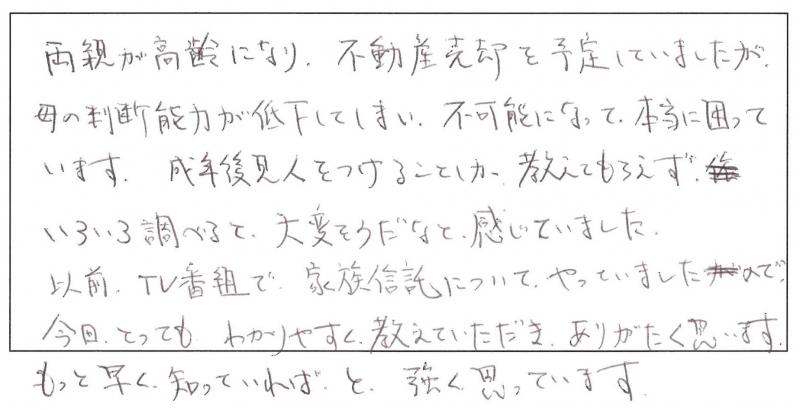 両親が高齢になり、不動産売却を予定していましたが、
母の判断能力が低下してしまい、不可能になって、本当に困って
います。成年後見人をつけることしか、教えてもらえず、
いろいろ調べると、大変そうだなと、感じていました。
以前、TV番組で、家族信託について、やっていましたので、
今回、とっても、わかりやすく、教えていただき、ありがたく思います。
もっと早く、知っていれば、と、強く思っています。